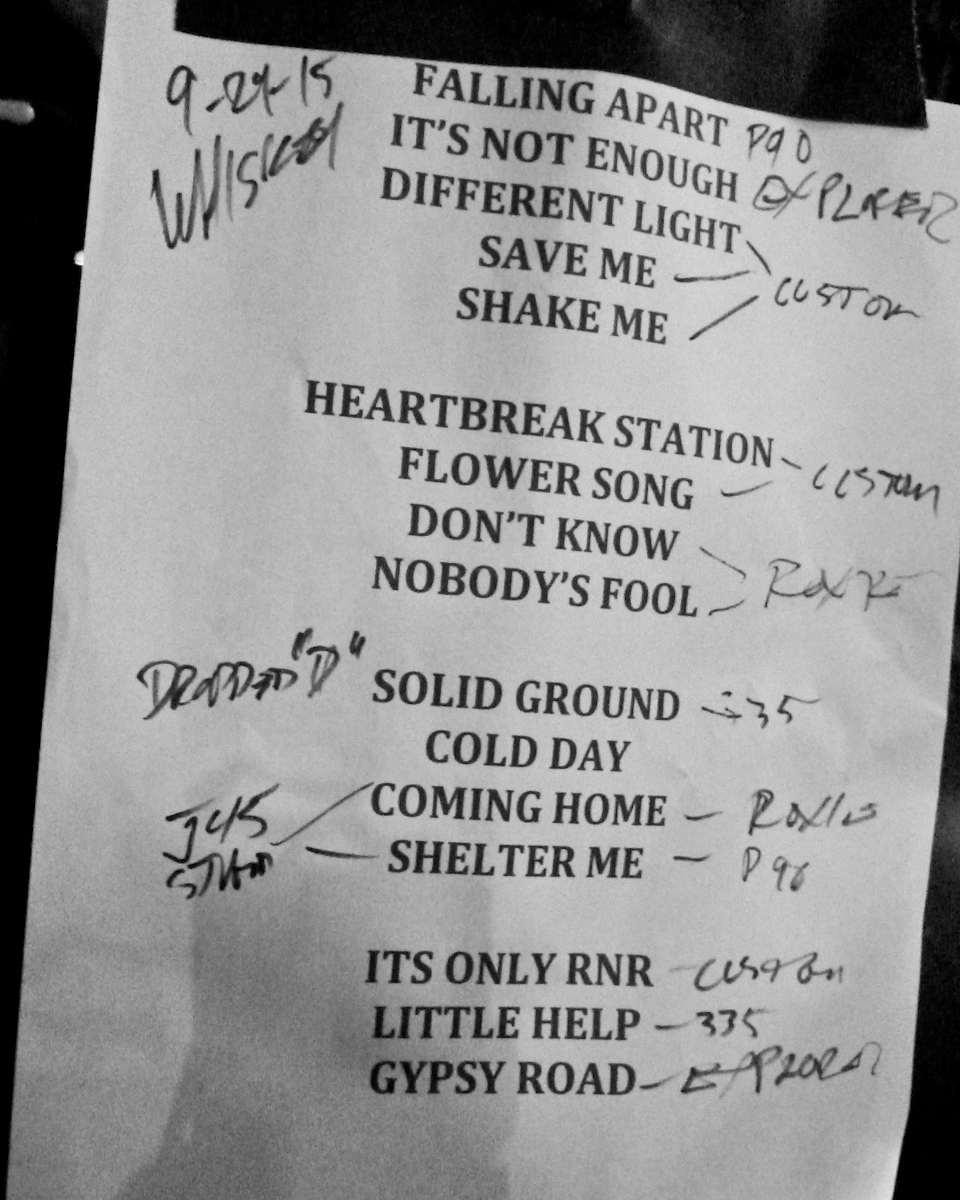 9-24-15
WHISKEY
FALLING APART P90
IT'S NOT ENOUGH EXPLORER
DIFFERENT LIGHT
SAVE ME — CUSTOM
SHAKE ME
HEARTBREAK STATION - CUSTOM
FLOWER SONG -
DON'T KNOW
NOBODY'S FOOL
DROPPED "D" SOLID GROUND - 335
COLD DAY
J45 COMING HOME -
STAND — SHELTER ME - P90
ITS ONLY RNR - CUSTOM
LITTLE HELP - 335
GYPSY ROAD - EXPLORER